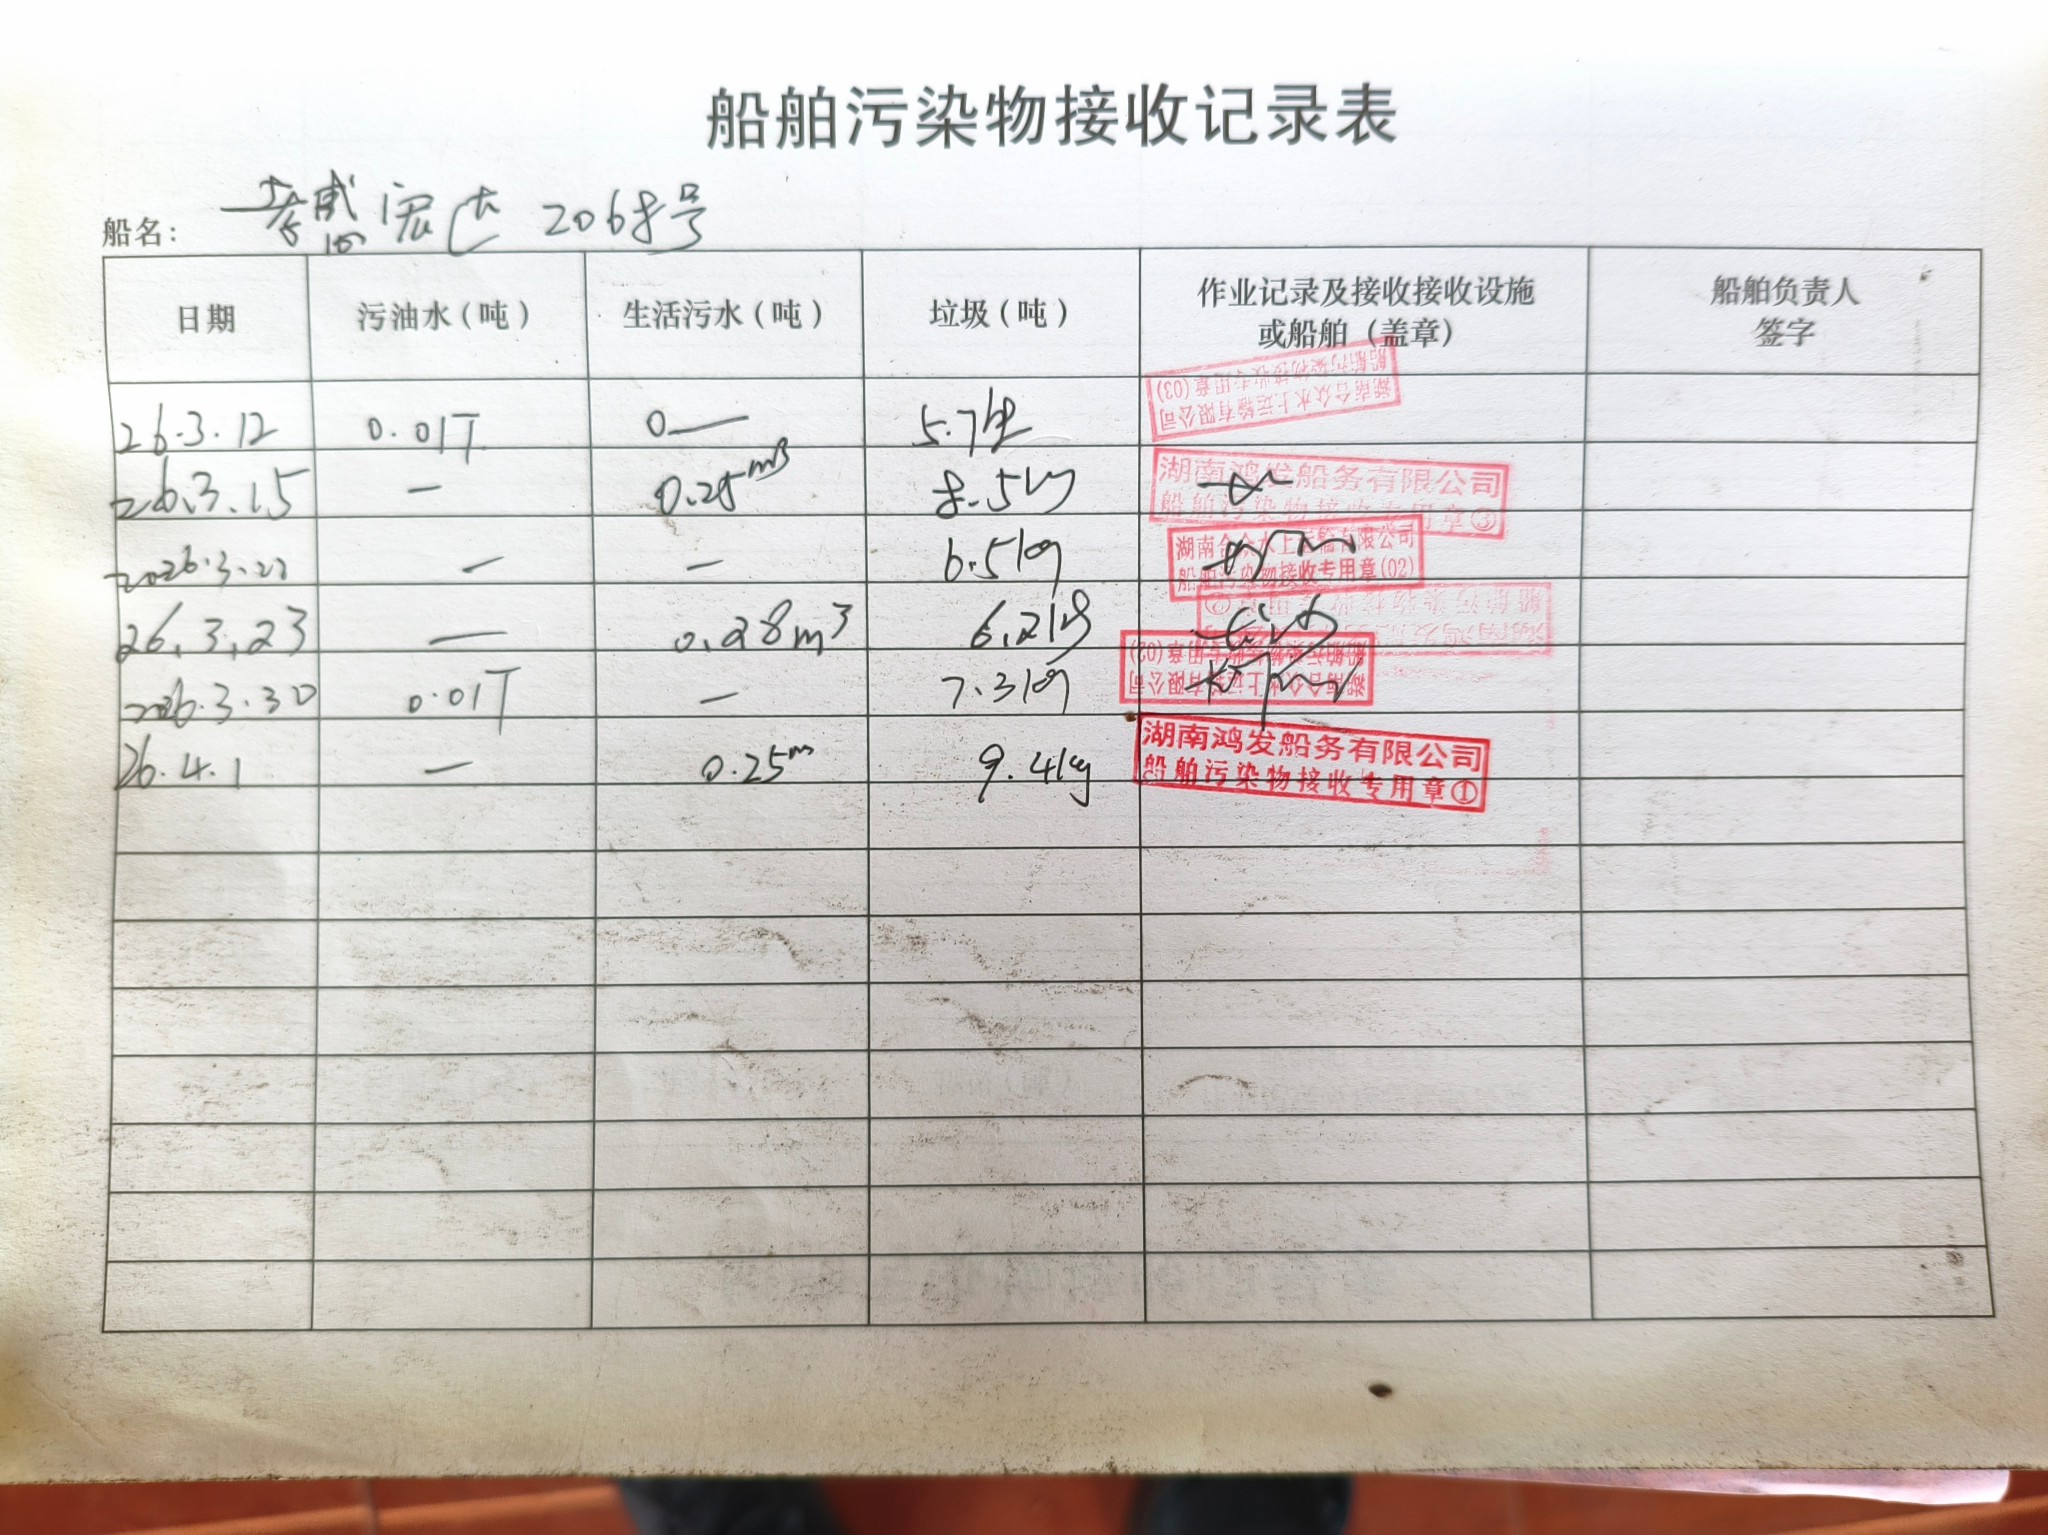 船舶污染物接收记录表
船名: 宏达 2068号
日期 污油水(吨) 生活污水(吨) 垃圾(吨) 作业记录及接收接收设施或船舶(盖章) 船舶负责人签字
26.3.12 0.01T 0— 5.7
湖南合众水上运输有限公司
船舶污染物接收专用章(03)
26.3.15 — 0.25m3 8.5kg
湖南鸿发船务有限公司
船舶污染物接收专用章③
2026.3.22 — — 6.5kg
湖南合众水上运输有限公司
船舶污染物接收专用章(02)
26.3.23 — 0.28m3 6.2kg
湖南鸿发船务有限公司
船舶污染物接收专用章②
2026.3.30 0.01T — 7.3kg
湖南合众水上运输有限公司
船舶污染物接收专用章(02)
26.4.1 — 0.25m 9.4kg
湖南鸿发船务有限公司
船舶污染物接收专用章①